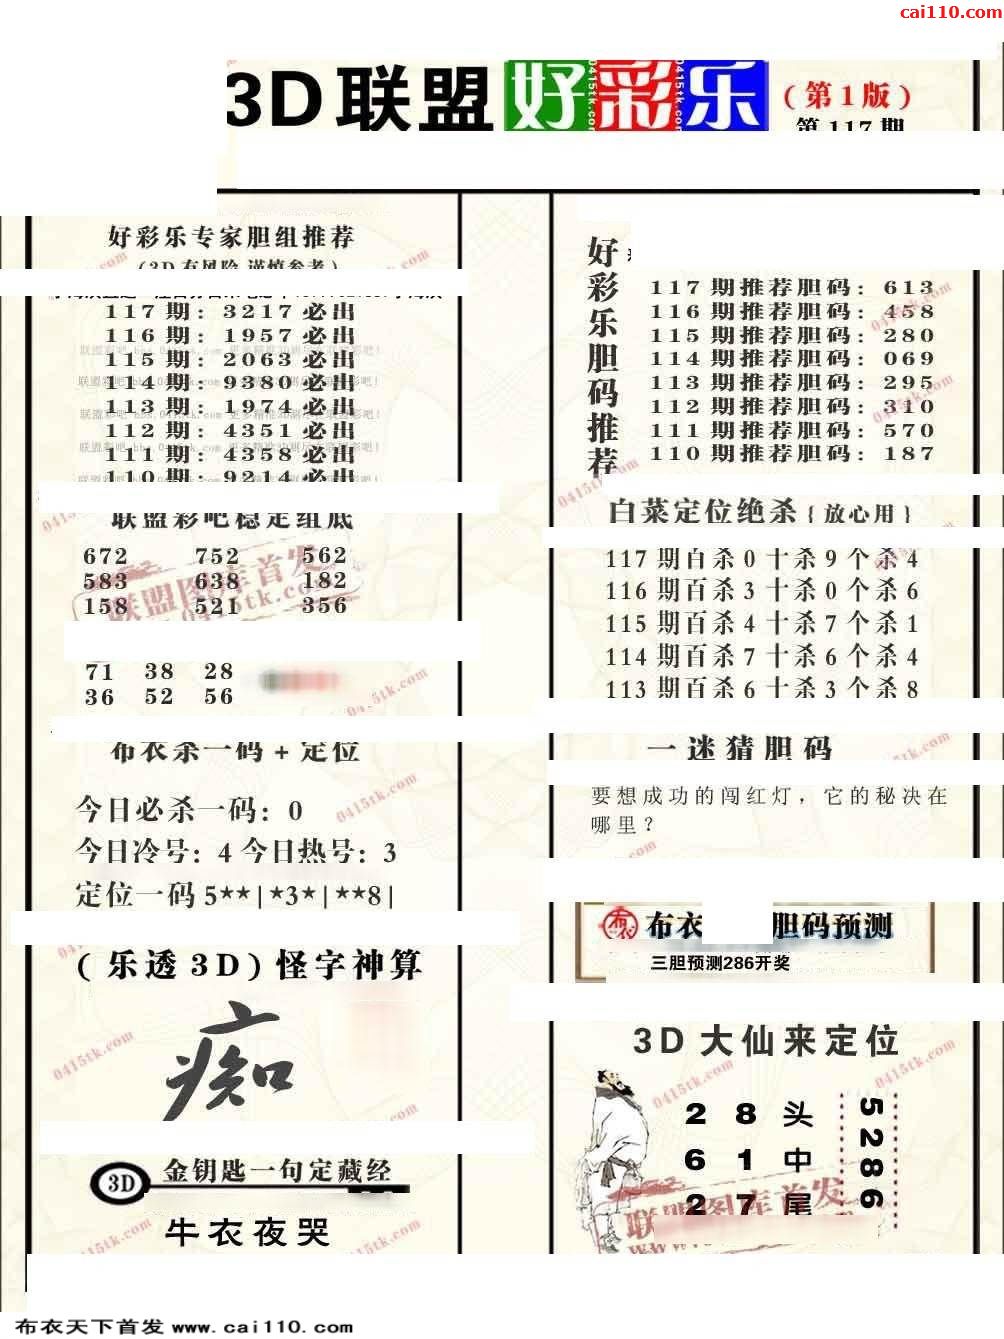 cai110.com
3D联盟好彩乐(第1版)
第117期
好彩乐专家胆组推荐
(3D有风险 谨慎参考)
117期:3217必出
116期:1957必出
115期:2063必出
114期:9380必出
113期:1974必出
112期:4351必出
111期:4358必出
110期:9214必出
联盟彩吧稳定组底
672 752 562
583 638 182
158 521 356
71 38 28
36 52 56
布衣杀一码+定位
今日必杀一码:0
今日冷号:4今日热号:3
定位一码5**|*3*|**8|
(乐透3D)怪字神算
痴
3D 金钥匙一句定藏经
牛衣夜哭
好彩乐胆码推荐
117期推荐胆码:613
116期推荐胆码:458
115期推荐胆码:280
114期推荐胆码:069
113期推荐胆码:295
112期推荐胆码:310
111期推荐胆码:570
110期推荐胆码:187
白菜定位绝杀{放心用}
117期百杀0十杀9个杀4
116期百杀3十杀0个杀6
115期百杀4十杀7个杀1
114期百杀7十杀6个杀4
113期百杀6十杀3个杀8
一迷猜胆码
要想成功的闯红灯,它的秘决在
哪里?
布衣 胆码预测
三胆预测286开奖
3D大仙来定位
2 8头
6 1中
2 7尾
5286
布衣天下首发 www.cai110.com